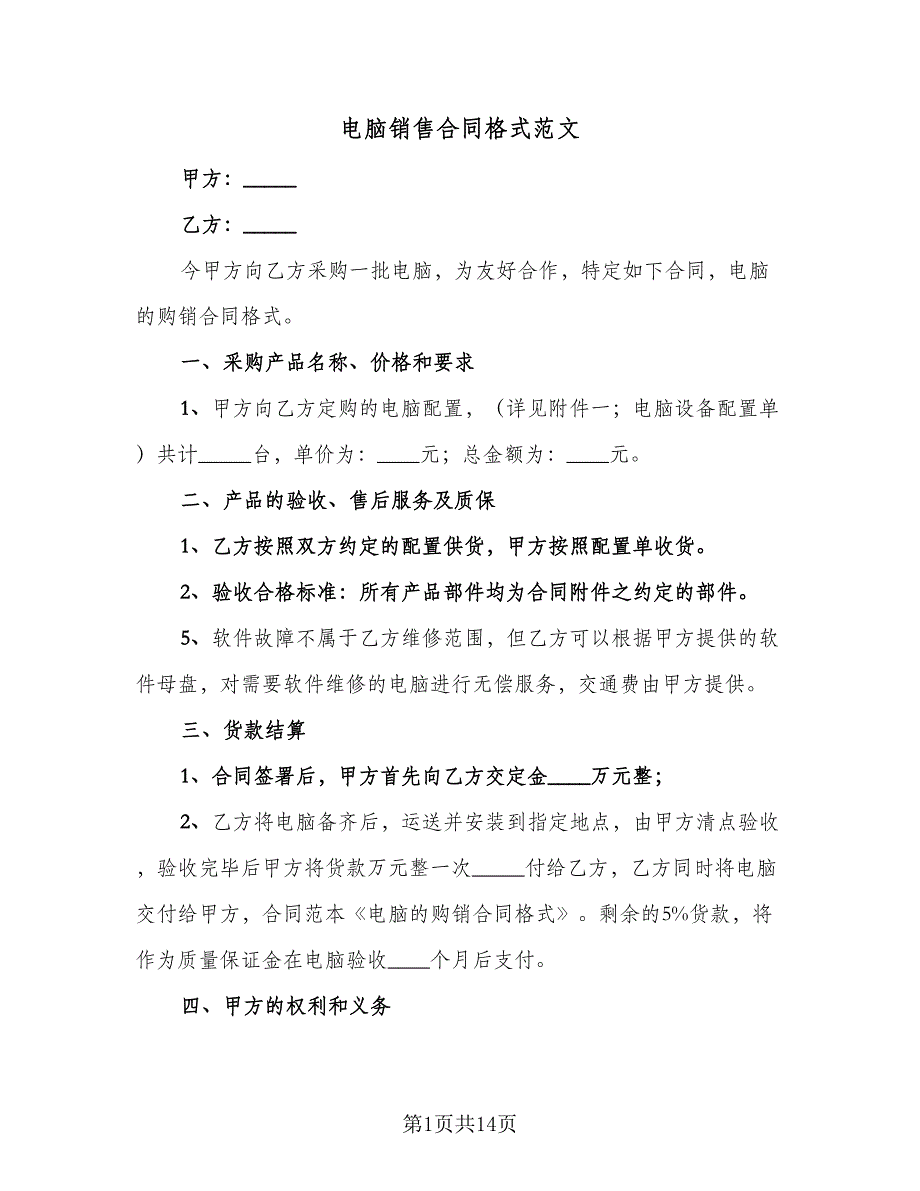 电脑销售合同格式范文
甲方：_____
乙方：_____
今甲方向乙方采购一批电脑，为友好合作，特定如下合同，电脑
的购销合同格式。
一、采购产品名称、价格和要求
1、甲方向乙方定购的电脑配置，（详见附件一；电脑设备配置单
）共计_____台，单价为：____元；总金额为：____元。
二、产品的验收、售后服务及质保
1、乙方按照双方约定的配置供货，甲方按照配置单收货。
2、验收合格标准：所有产品部件均为合同附件之约定的部件。
5、软件故障不属于乙方维修范围，但乙方可以根据甲方提供的软
件母盘，对需要软件维修的电脑进行无偿服务，交通费由甲方提供。
三、货款结算
1、合同签署后，甲方首先向乙方交定金____万元整；
2、乙方将电脑备齐后，运送并安装到指定地点，由甲方清点验收
，验收完毕后甲方将货款万元整一次_____付给乙方，乙方同时将电脑
交付给甲方，合同范本《电脑的购销合同格式》。剩余的5%货款，将
作为质量保证金在电脑验收____个月后支付。
四、甲方的权利和义务
第1页共14页